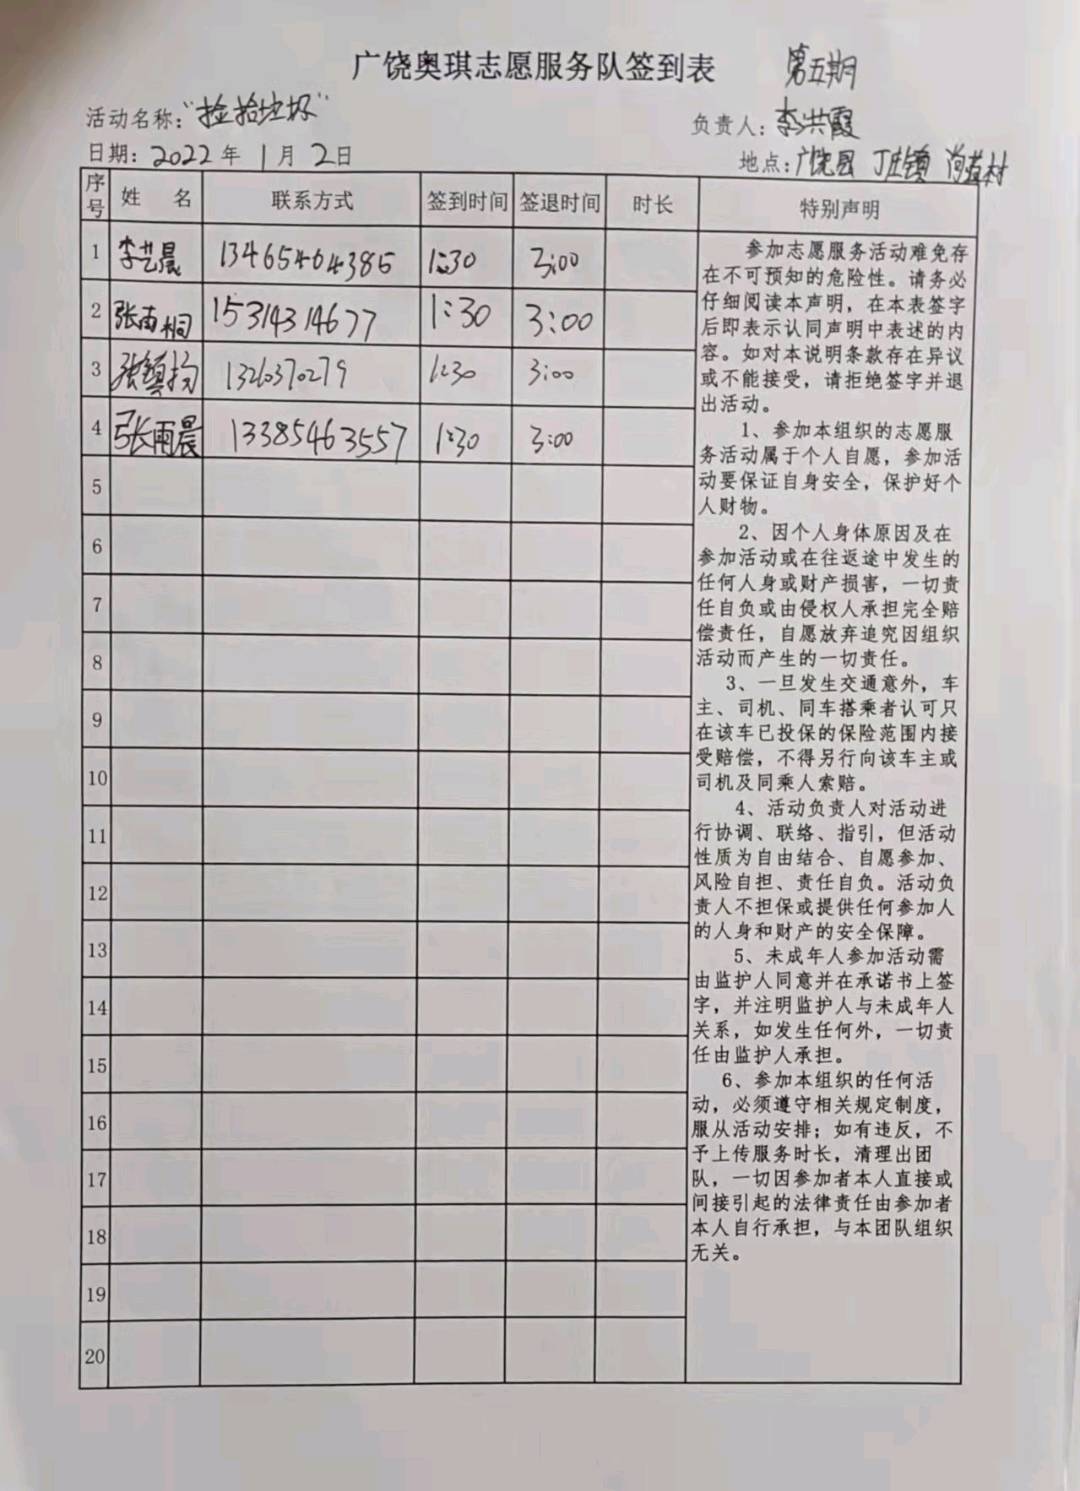 广饶奥琪志愿服务队签到表 第五期
活动名称:“捡拾垃圾” 负责人:李洪霞
日期:2022年1月2日 地点:广饶县 丁庄镇 村
序号 姓 名 联系方式 签到时间 签退时间 时长 特别声明
1 李艺晨 13465464385 1:30 3:00
2 张南桐 15314314677 1:30 3:00
3 张镇扬 1326370279 1:30 3:00
4 张雨晨 13385463557 1:30 3:00
5
6
7
8
9
10
11
12
13
14
15
16
17
18
19
20
参加志愿服务活动难免存
在不可预知的危险性。请务必
仔细阅读本声明，在本表签字
后即表示认同声明中表述的内
容。如对本说明条款存在异议
或不能接受，请拒绝签字并退
出活动。
1、参加本组织的志愿服
务活动属于个人自愿，参加活
动要保证自身安全，保护好个
人财物。
2、因个人身体原因及在
参加活动或在往返途中发生的
任何人身或财产损害，一切责
任自负或由侵权人承担完全赔
偿责任，自愿放弃追究因组织
活动而产生的一切责任。
3、一旦发生交通意外，车
主、司机、同车搭乘者认可只
在该车已投保的保险范围内接
受赔偿，不得另行向该车主或
司机及同乘人索赔。
4、活动负责人对活动进
行协调、联络、指引，但活动
性质为自由结合、自愿参加、
风险自担、责任自负。活动负
责人不担保或提供任何参加人
的人身和财产的安全保障。
5、未成年人参加活动需
由监护人同意并在承诺书上签
字，并注明监护人与未成年人
关系，如发生任何外，一切责
任由监护人承担。
6、参加本组织的任何活
动，必须遵守相关规定制度，
服从活动安排；如有违反，不
予上传服务时长，清理出团
队，一切因参加者本人直接或
间接引起的法律责任由参加者
本人自行承担，与本团队组织
无关。